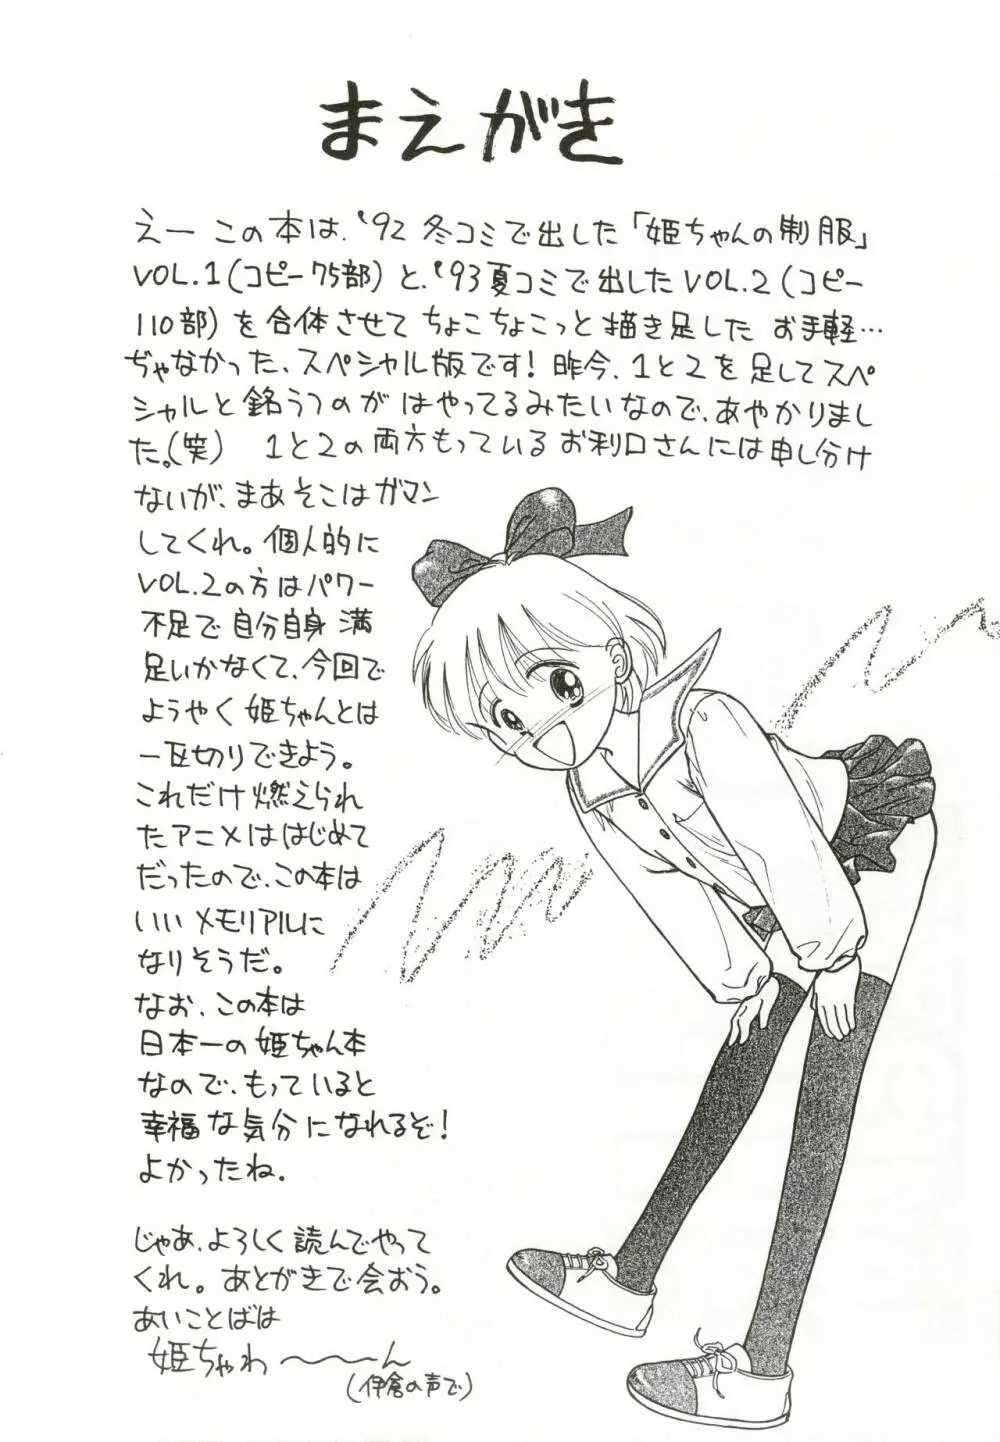 まえがき
えー この本は、'92 冬コミで出した「姫ちゃんの制服」
VOL.1(コピー75部)と、'93夏コミで出したVOL.2(コピー
110部)を合体させてちょこちょこっと描き足した お手軽…
ぢゃなかった、スペシャル版です！昨今、1と2を足してスペ
シャルと銘うつのがはやってるみたいなので、あやかりまし
た。(笑) 1と2の両方もっているお利口さんには申し分け
ないが、まあそこはガマン
してくれ。個人的に
VOL.2の方はパワー
不足で自分自身 満
足いかなくて、今回で
ようやく姫ちゃんとは
一区切りできよう。
これだけ燃えられ
たアニメははじめて
だったので、この本は
いいメモリアルに
なりそうだ。
なお、この本は
日本一の姫ちゃん本
なので、もっていると
幸福な気分になれるぞ！
よかったね。
じゃあ、よろしく読んでやって
くれ。あとがきで会おう。
あいことばは
姫ちゃわ〜〜〜ん
(伊倉の声で)